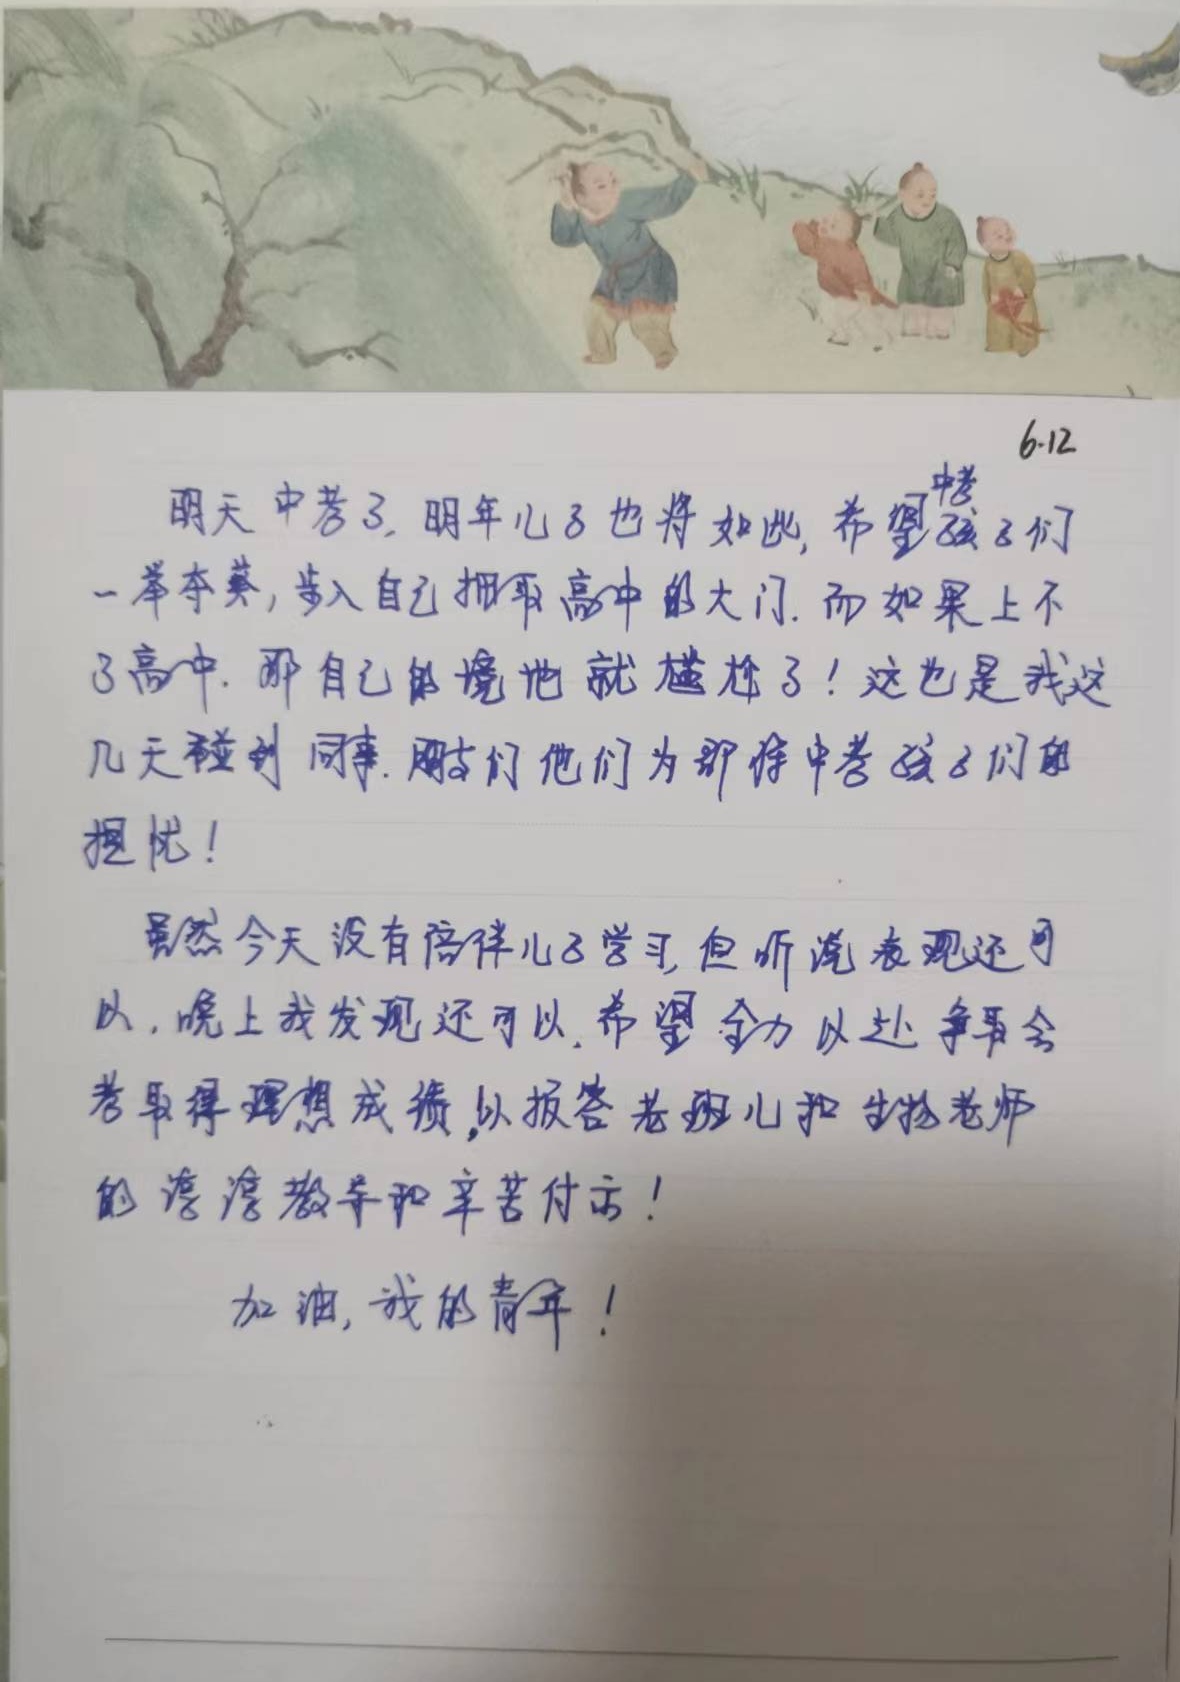 6.12
明天中考了,明年儿子也将如此,希望中考孩子们
一举夺葵,步入自己拥取高中的大门.而如果上不
了高中.那自己的境地就尴尬了!这也是我这
几天碰到同事.朋友们他们为即将中考孩子们的
担忧!
虽然今天没有陪伴儿子学习,但听说表现还可
以.晚上我发现还可以.希望全力以赴争取会
考取得理想成绩,以报答老班儿和生物老师
的谆谆教导和辛苦付出!
加油,我的青年!